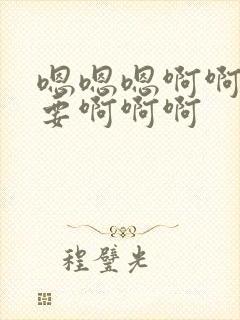 嗯嗯嗯啊啊
要啊啊啊
程璧光